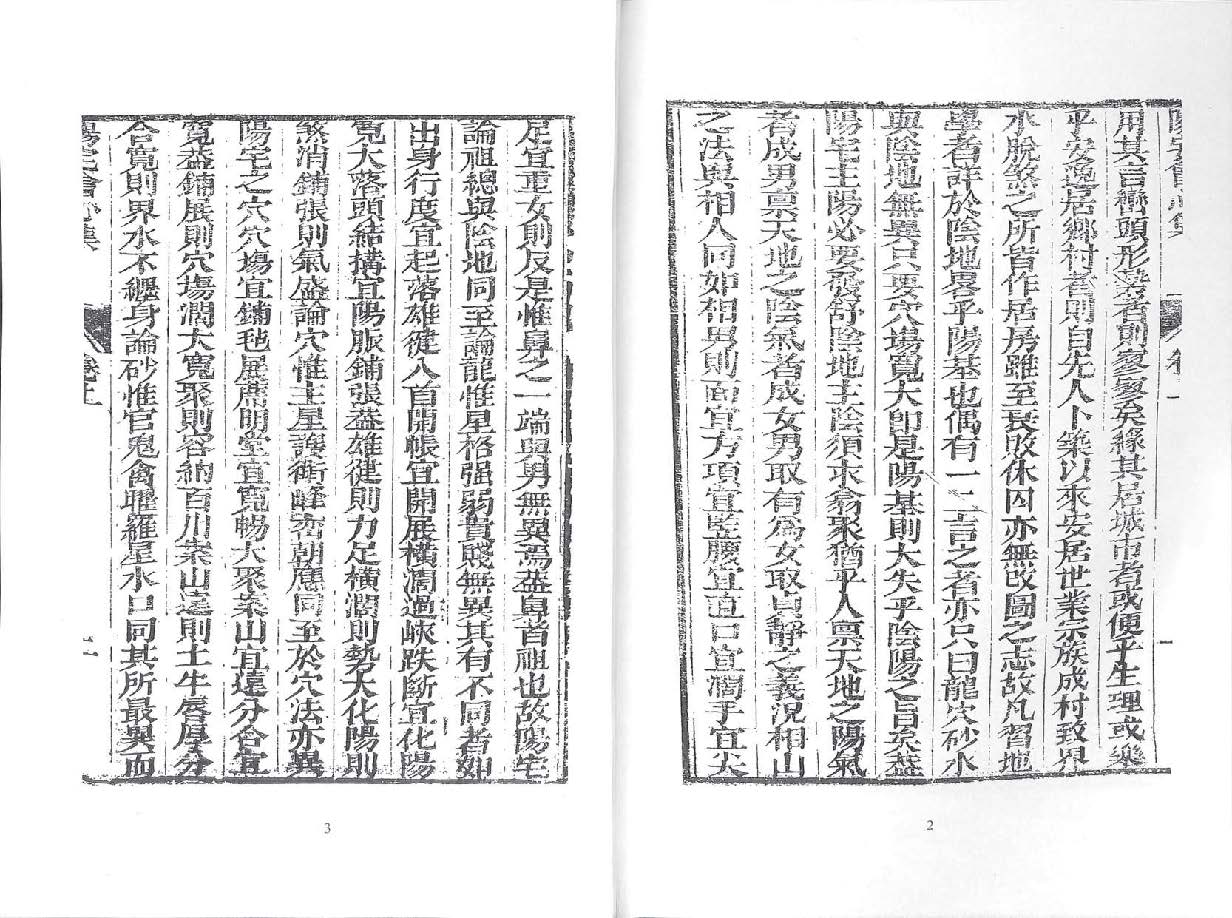 陽宅會心集 卷上 一
用其言巒頭形勢者則寥寥矣緣其居城市者或便乎生理或樂
乎安逸居鄉村者則自先人卜築以來安居世業宗族成村致界
水脫煞之所皆作居房雖至衰敗休囚亦無改圖之志故凡習地
學者詳於陰地畧乎陽基也偶有一二言之者亦只曰龍穴砂水
與陰地無異只要穴場寬大卽是陽基則大失乎陰陽之旨矣葢
陽宅主陽必要發舒陰地主陰須求翕聚猶乎人禀天地之陽氣
者成男禀天地之陰氣者成女男取有為女取貞靜之義況相山
之法與相人同如相男則面宜方項宜竪腰宜直口宜濶手宜尖
2
足宜重女則反是惟鼻之一端與男無異焉葢鼻者祖也故陽宅
論祖總與陰地同至論龍惟星格强弱貴賤無異其有不同者如
出身行度宜起落雄健入首開帳宜開展橫濶過峽跌斷宜化陽
寬大落頭結搆宜陽脈鋪張葢雄健則力足橫濶則勢大化陽則
煞消鋪張則氣盛論穴惟主星護衛峰巒朝應同至於穴法亦異
陽宅之穴穴塲宜鋪毡展蓆明堂宜寬暢大聚案山宜遠分合宜
寬葢鋪展則穴塲濶大寬聚則容納百川案山遠則土牛唇厚分
合寬則界水不纏身論砂惟官鬼禽曜羅星水口同其所最異而
陽宅會心集 卷上 二
3